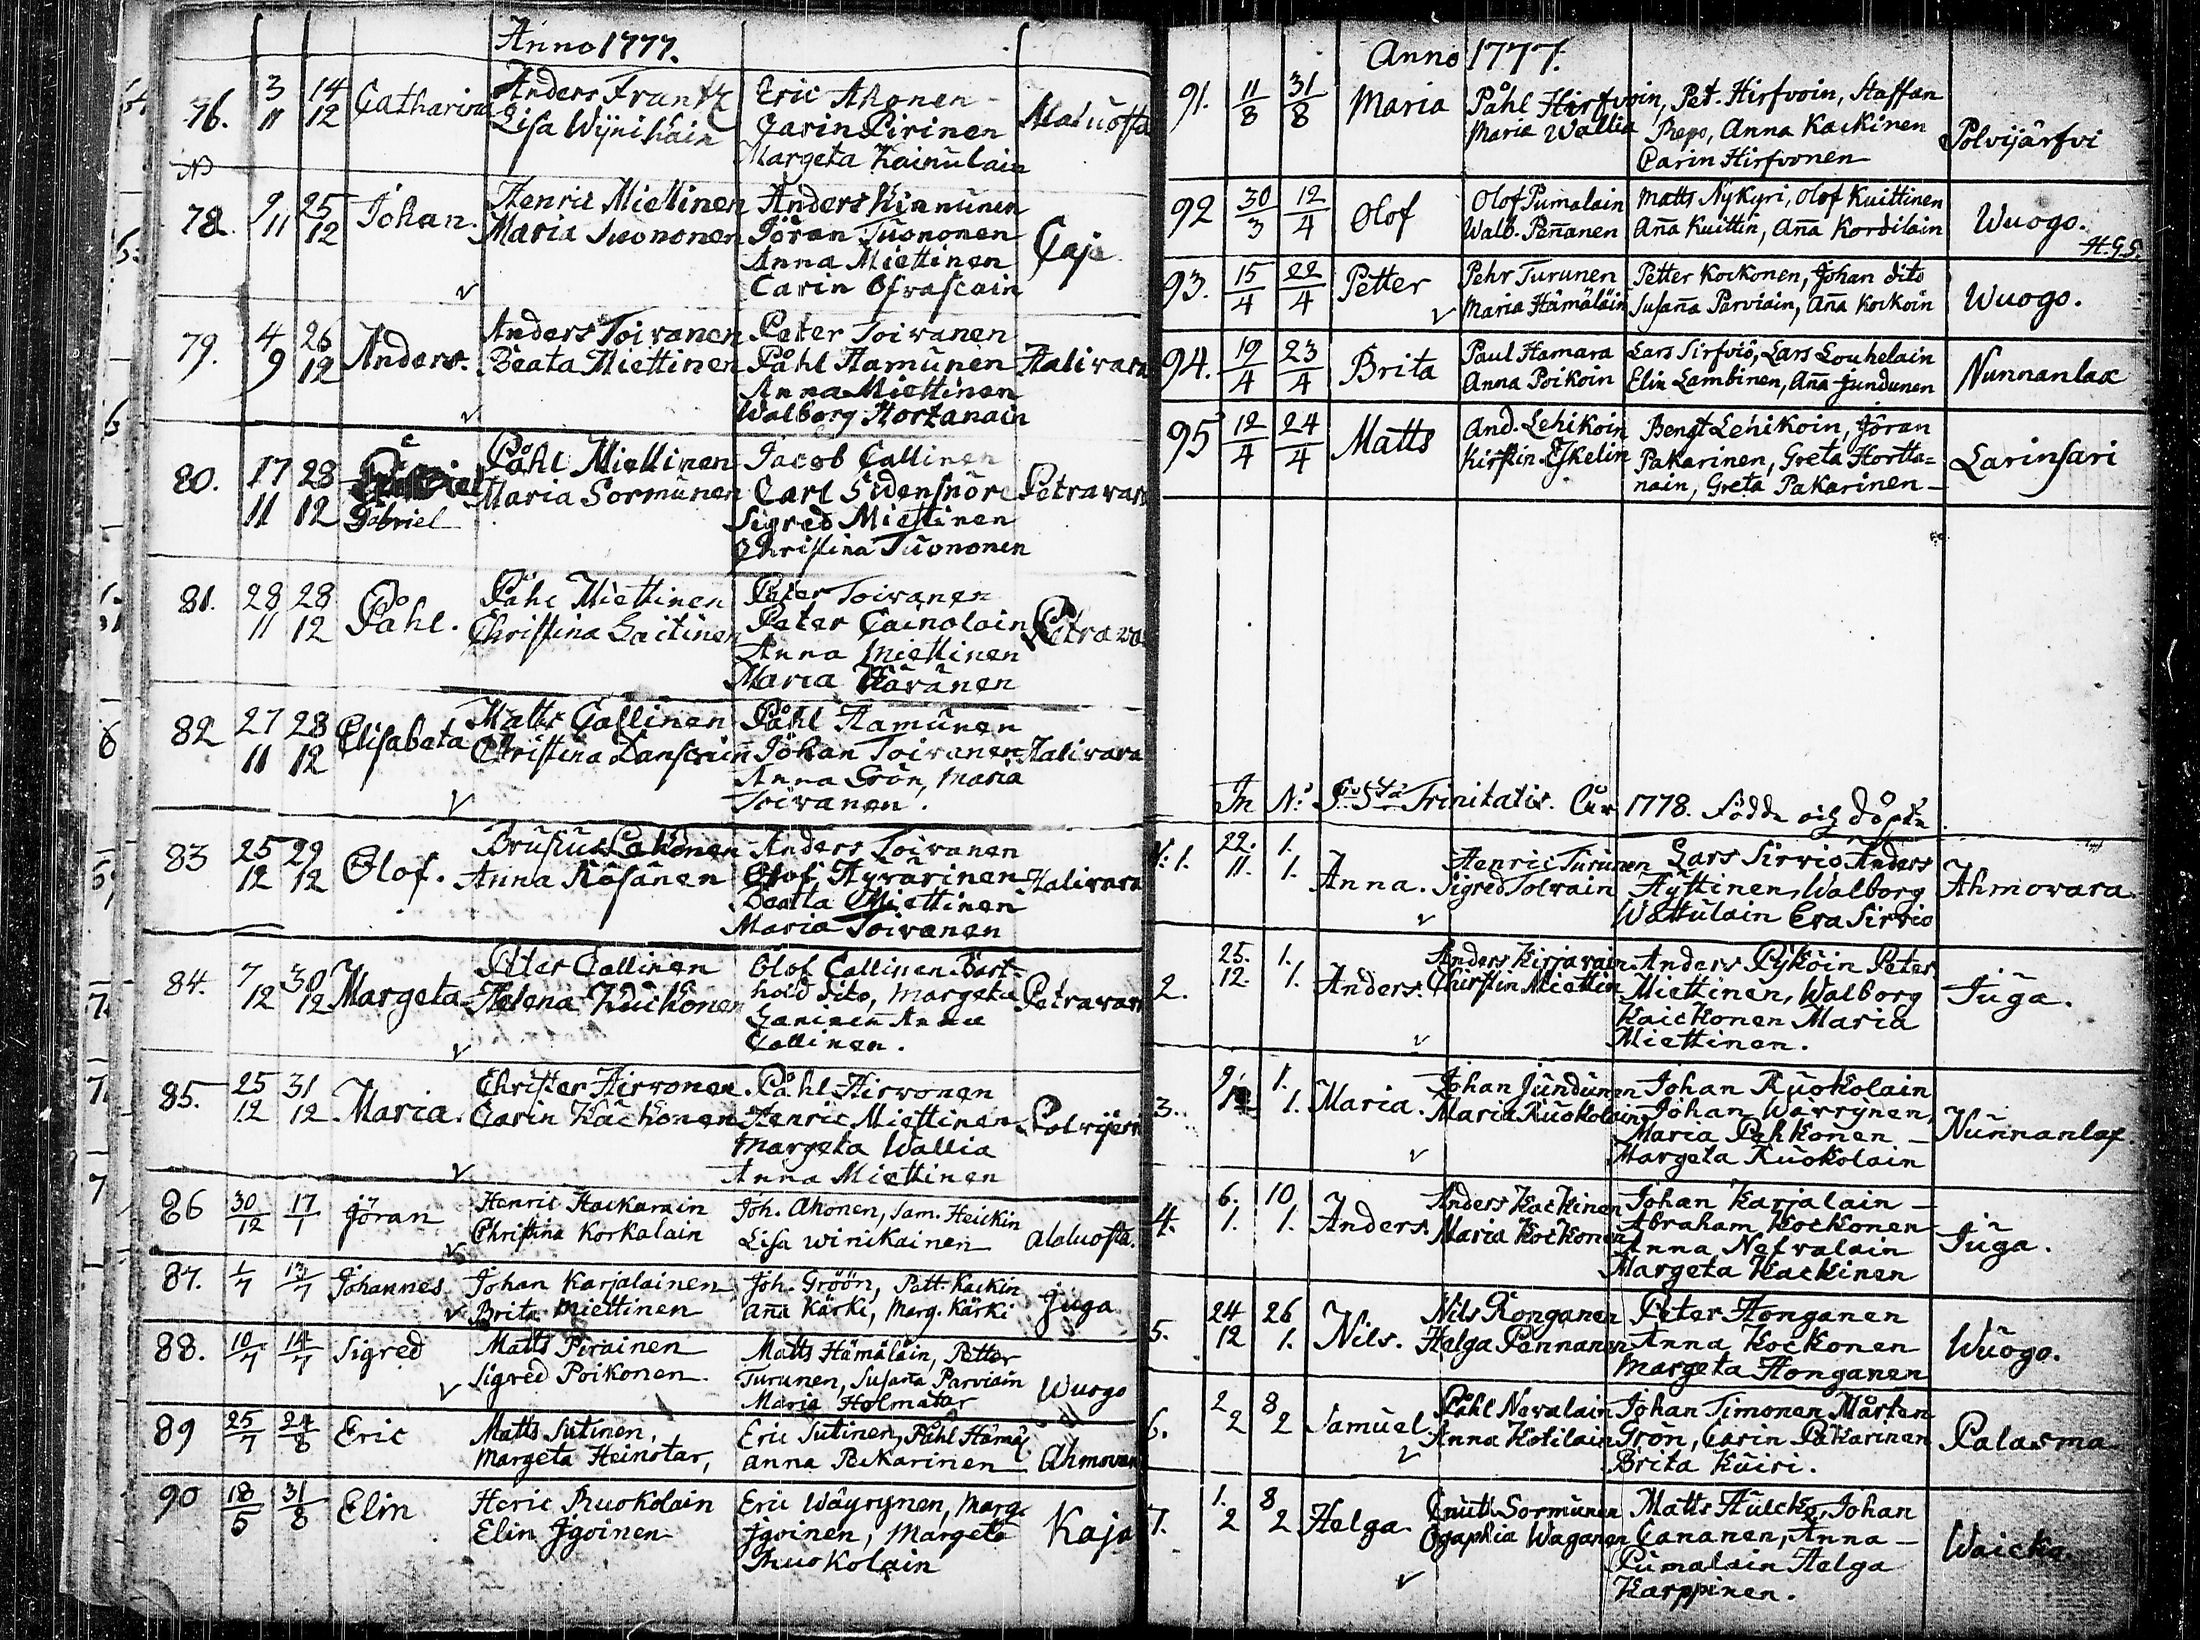 Anno 1777.
76. 3/11 14/12 Catharina Anders Frantz Eric Ahonen Alaluosta
Lisa Wÿnikain Carin Pirinen
Margeta Kainulain
78. 9/11 25/12 Johan. Henric Miettinen Anders Kinnunen Caje
Maria Tuononen Jöran Tuononen
Anna Miettinen
Carin Ofvascain
79. 4/9 26/12 Anders. Anders Toivanen Peter Toivanen Halivara
Beata Miettinen Påhl Hamunen
Anna Miettinen
Walborg Hortanain
80. 17/11 28/12 Gabriel Påhl Miettinen Jacob Callinen Petravara
Maria Sormunen Carl Sidensnöre
Sigred Miettinen
Christina Tuononen
81. 28/11 28/12 Påhl. Påhl Miettinen Peter Toivanen Petrava
Christina Laitinen Peter Cainolain
Anna Miettinen
Maria Häränen
82 27/11 28/12 Elisabeta Matts Callinen Påhl Hamunen Halivara
Christina Danscain Johan Toivanen
Anna Grön, Maria
Toivanen.
83 25/12 29/12 Olof. Brusius Lakonen Anders Toivanen Halivara
Anna Räsänen Olof Hyvärinen
Beata Miettinen
Maria Toivanen
84. 7/12 30/12 Margeta Petter Callinen Olof Callinen Bart-
Helena Kuickonen hold dito, Margeta Petravara
Callinen.
85. 25/12 31/12 Maria. Christer Hirvonen Påhl Hirvonen
Carin Kackonen Henric Miettinen Polvijerv
Margeta Wallia
Anna Miettinen
86 30/12 17/1 Jöran Henric Hackarain Joh. Ahonen, Sam. Heickin
Christina Korkalain Lisa Winikainen alaluosta.
87. 1/7 13/7 Johannes Johan Karjalainen Joh. Gröön, Pett. Kackin Juga
Brita Miettinen Aña Kärki, Marg. Kärki
88. 10/7 14/7 Sigred Matts Pirainen Matts Hämäläin, Petter
Sigred Poikonen Turunen, Susaña Parviain Wuogo
Maria Holmatar
89 25/7 24/8 Eric Matts Sutinen, Eric Sutinen, Påhl Hämäl
Margeta Heinotar, anna Pakarinen Ahmovara
90 18/5 31/8 Elin Heric Ruokolain Eric Wäyrynen, Marg. Kaja
Elin Jgoinen Jgoinen, Margeta
Ruokolain
Anno 1777.
91. 11/8 31/8 Maria Påhl Hirfvoin, Pet. Hirfvoin, Staffan
Maria Wallia Repo, Anna Kackinen Polvijärfvi
Carin Hirfvonen
92 30/3 12/4 Olof Olof Pumalain Matts Nykyri, Olof Kuittinen Wuogo.
Walb. Peñanen Aña Kuittin, Aña Kordilain
H.G.S.
93. 15/4 22/4 Petter Pehr Turunen Petter Kockonen, Johan dito Wuogo.
Maria Hämäläin Susaña Parviain, Aña Kockoin
94. 19/4 23/4 Brita Paul Hamara Lars Sirfviö, Lars Louhelain Nunnanlax
Anna Poikoin Elin Lambinen, Aña Jundunen
95 12/4 24/4 Matts And. Lehikoin Bengt Lehikoin, Jöran Larinsari
Kirstin Eskelin Pakarinen, Greta Hortta=
nain, Greta Pakarinen
Trinitatis. 1778. Födde och döpte
N: 1. 22./11. 1./1. Anna. Henric Turunen Lars Sirviö Anders
Sigred Tolvain Hyttinen, Walborg Ahmovara.
Wattulain Eva Sirvio
2. 25./12. 1./1. Anders. Anders Kirjavain Anders Pyköin Peter Juga.
Chirstin Miettin Miettinen, Walborg
Kaickonen Maria
Miettinen.
3. 9/12 1./1. Maria. Johan Jundunen Johan Ruokolain
Maria Ruokolain Johan Wärrynen, Nunnanlax.
Maria Pehkonen
Margeta Ruokolain
4. 6./1. 10/1. Anders. Anders Kackinen Johan Karjalain
Maria Kockonen Abraham Kockonen Juga.
Anna Nefvalain
Margeta Kackinen
5. 24/12 26/1. Nils. Nils Ronganen Peter Honganen
Helga Pennanen Anna Kockonen Wuogo.
Margeta Honganen
6. 2/2 8/2 Samuel Påhl Nevalain Johan Timonen Mårten
Anna Kotilain Gron, Carin Pakarinen Palasma
Brita Kuiri.
7. 1./2 8/2 Helga. Cnut Sormunen Matts Hulcko, Johan
Ogaphia Waganen Cananen, Anna Waicko.
Pumalain Helga
Karppinen.